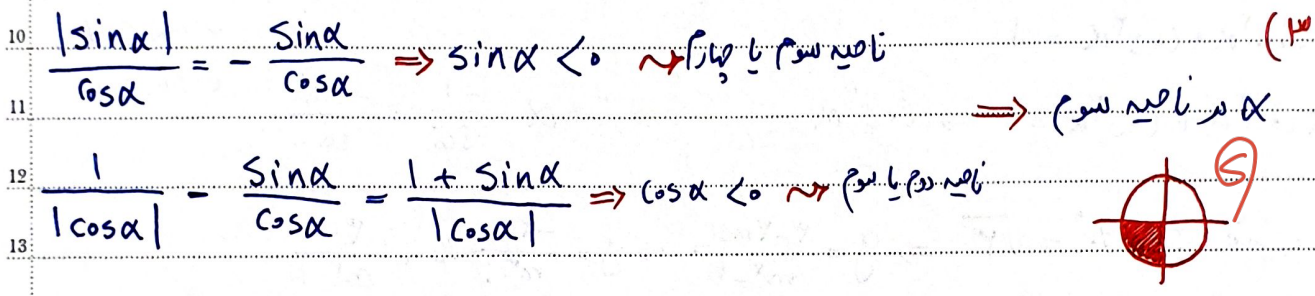 ۳)
10 |sinα| / cosα = - sinα / cosα ⇒ sinα < ۰ ⇝ ناحیه سوم یا چهارم
11 ⇒ α در ناحیه سوم
12 1 / |cosα| - sinα / cosα = 1 + sinα / |cosα| ⇒ cosα < ۰ ⇝ ناحیه دوم یا سوم
13